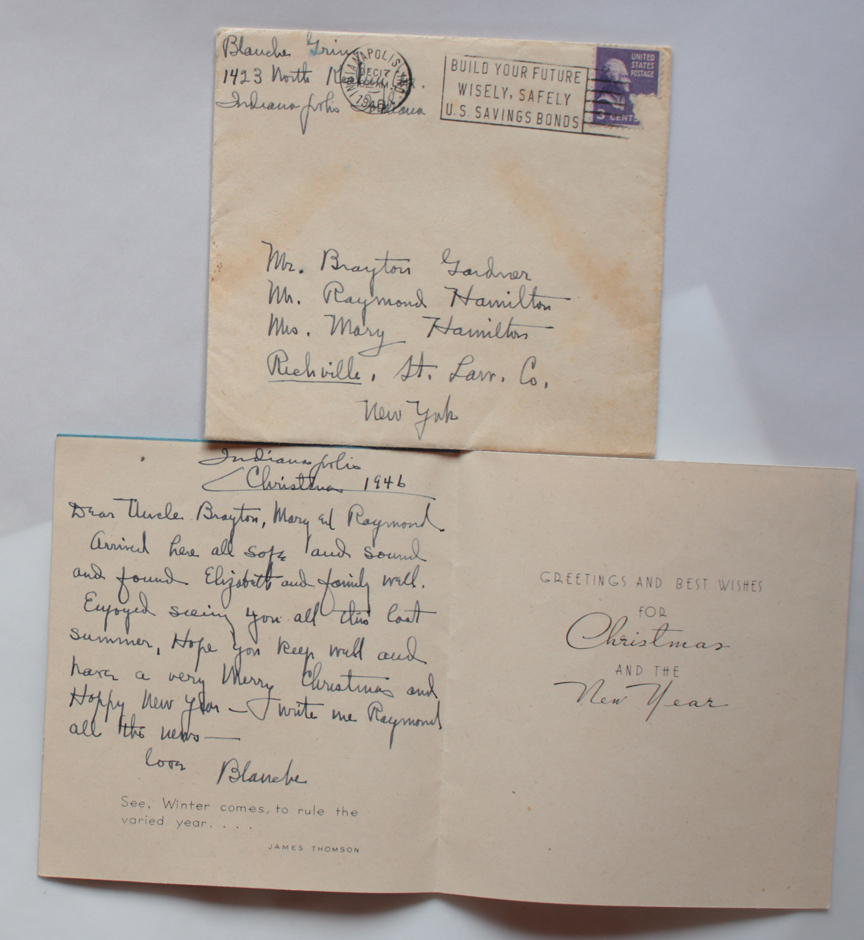 Blanche
1423 North
Indianapolis Indiana
INDIANAPOLIS, IND.
DEC 17
1946
BUILD YOUR FUTURE
WISELY, SAFELY
U.S. SAVINGS BONDS
UNITED
STATES
POSTAGE
3 CENTS
Mr. Brayton Gardner
Mr. Raymond Hamilton
Mrs. Mary Hamilton
Richville, St. Lawr. Co.
New York
Indianapolis
Christmas 1946
Dear Uncle Brayton, Mary and Raymond
Arrived here all safe and sound
and found Elizabeth and family well.
Enjoyed seeing you all this last
summer, Hope you keep well and
have a very Merry Christmas and
Happy New Year — write me Raymond
all the news —
Love Blanche
See, Winter comes, to rule the
varied year. . . .
JAMES THOMSON
GREETINGS AND BEST WISHES
FOR
Christmas
AND THE
New Year